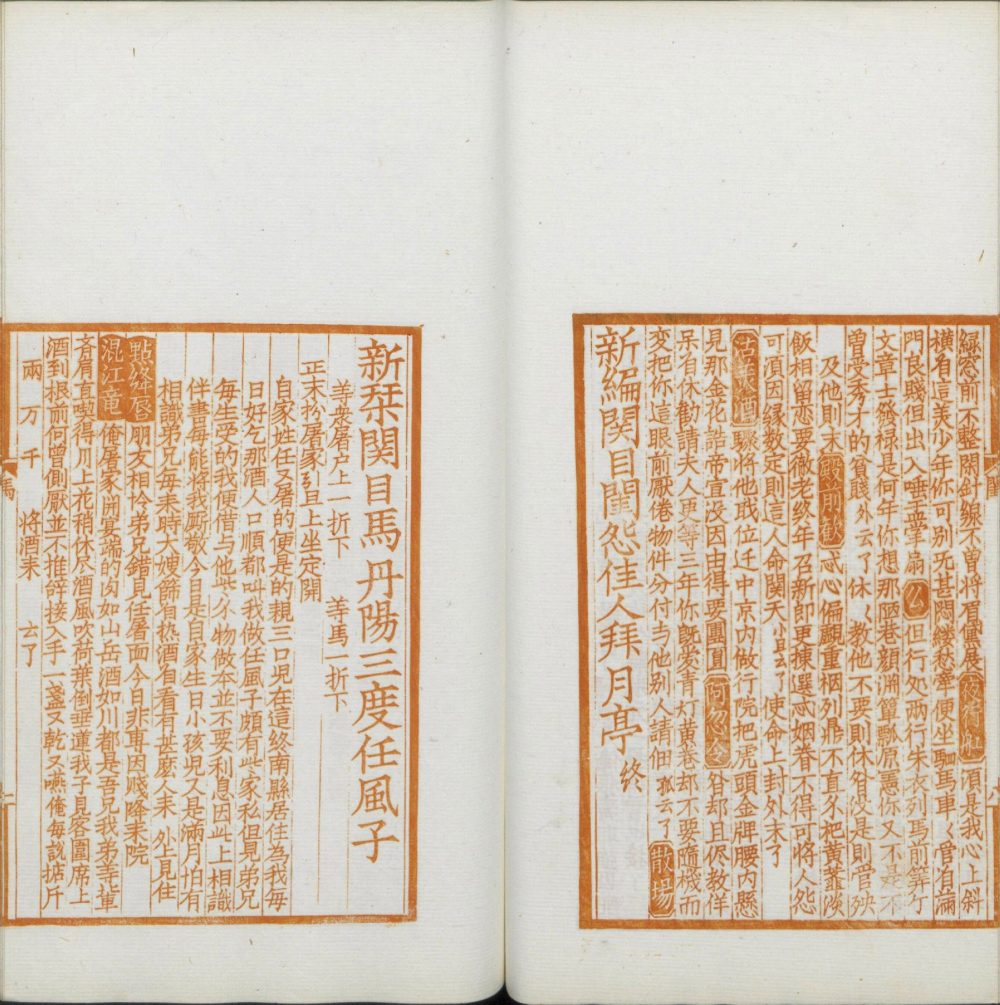 緑窓前不整閑針線不曽将眉黛展 夜行舡 須是我心上斜
橫着這美少年你可別无甚悶縷愁牽便坐駟馬車〻管着滿
門良賤但出入唾盂掌扇 么 但行処兩行朱衣列馬前筭个
文章士發禄是何年你想那陋巷顔渊簞瓢原憲你又不是不
曽受秀才的貧賤外云了休〻教他不要則休咱沒是則管殃
及他則末 殿前歡 忒心偏覷重裀列鼎不直久把黃虀淡
飯相留恋要徹老終年召新郎更揀選忒姻眷不得可將人怨
可須因縁数定則這人命関天小旦云了使命上封外末了
沽美酒 驟将他职位迁中京内做行院把虎頭金牌腰内懸
見那金花誥帝宣没因由得要團圓 阿忽令 咱却且侭教佯
呆着休勸請夫人更等三年你既愛青灯黃卷却不要隨機而
变把你這眼前厭倦物件分付与他別人請佃 孤云了 散場
新編関目閨怨佳人拜月亭 終
新栞関目馬丹陽三度任風子
等衆屠户上一折下 等馬一折下
正末扮屠家引旦上坐定開
自家姓任又屠的便是的親三口児在這終南縣居住為我每
日好乞那酒人口順都叫我做任風子頗有些家私但見弟兄
每生受的我便借与他些小物做本並不要利息因此上相識
伴書每能將我廝敬今日是自家生日小孩児又是滿月怕有
相識弟兄每来時大嫂篩着热酒者看有甚麽人来 外旦見住
點絳唇 朋友相怜弟兄錯見任屠面今日非専因賤降来院
混江竜 俺屠家開宴端的肉如山岳酒如川都是吾兄我弟等輩
齐肩直喫得川上花稍休尽酒風吹荷葉倒垂蓮我子見客圍席上
酒到根前何曽創厭並不推辞接入手一盞又乾又嚥俺每該掂斤
兩万千 将酒来 云了